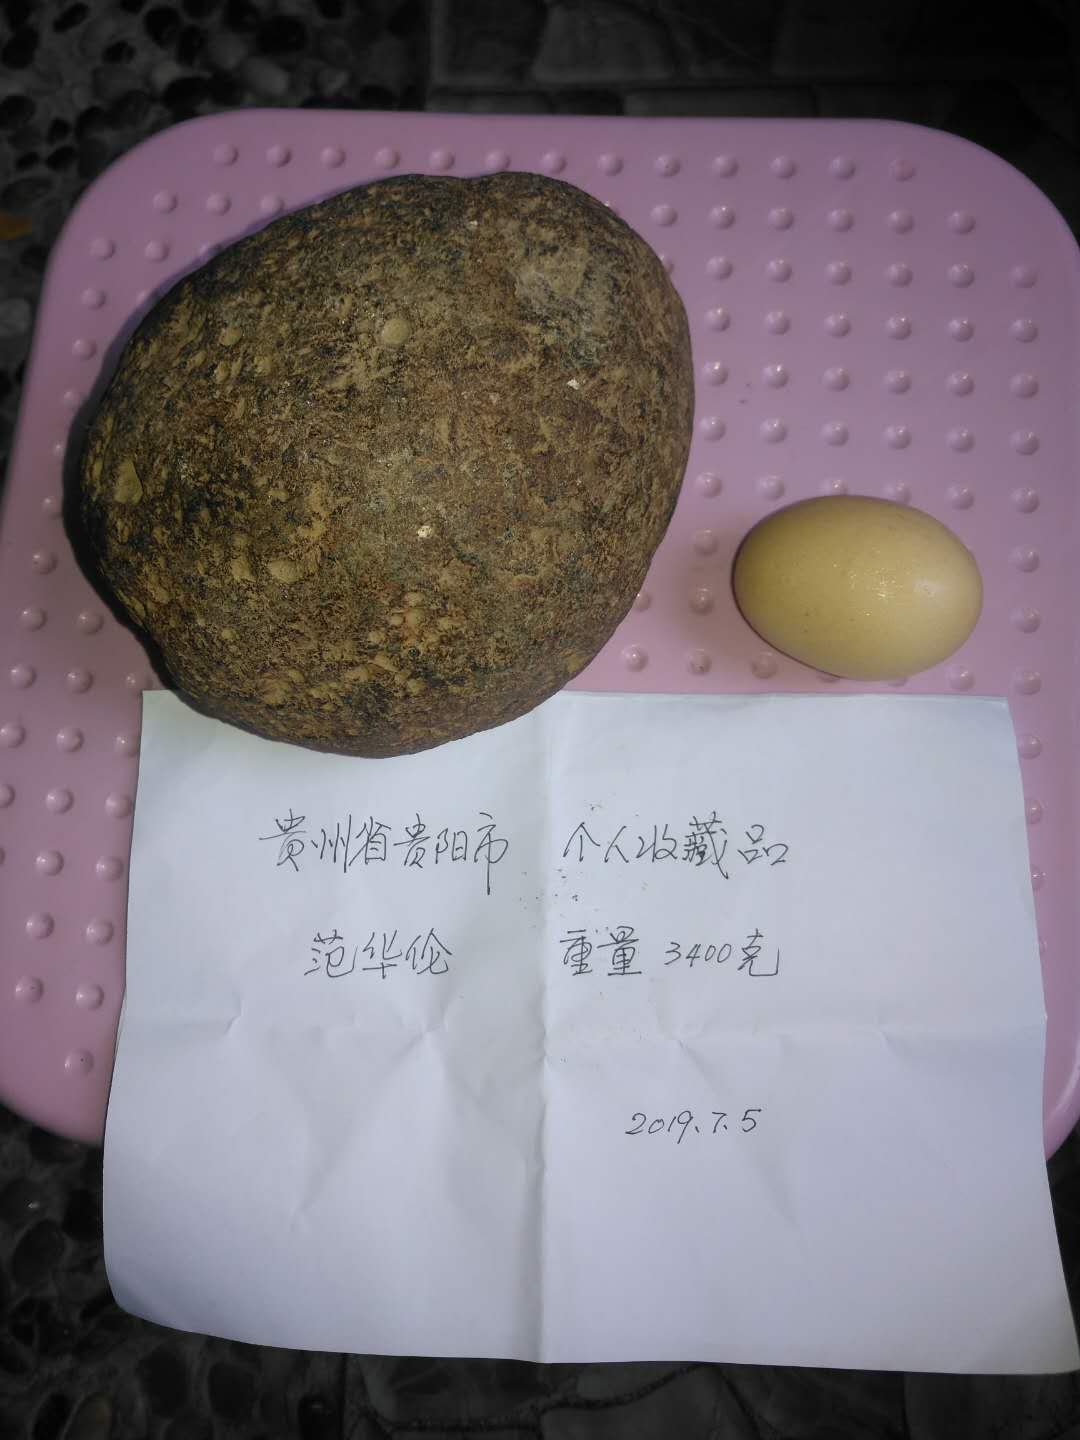 贵州省贵阳市 个人收藏品
范华伦 重量 3400克
2019.7.5